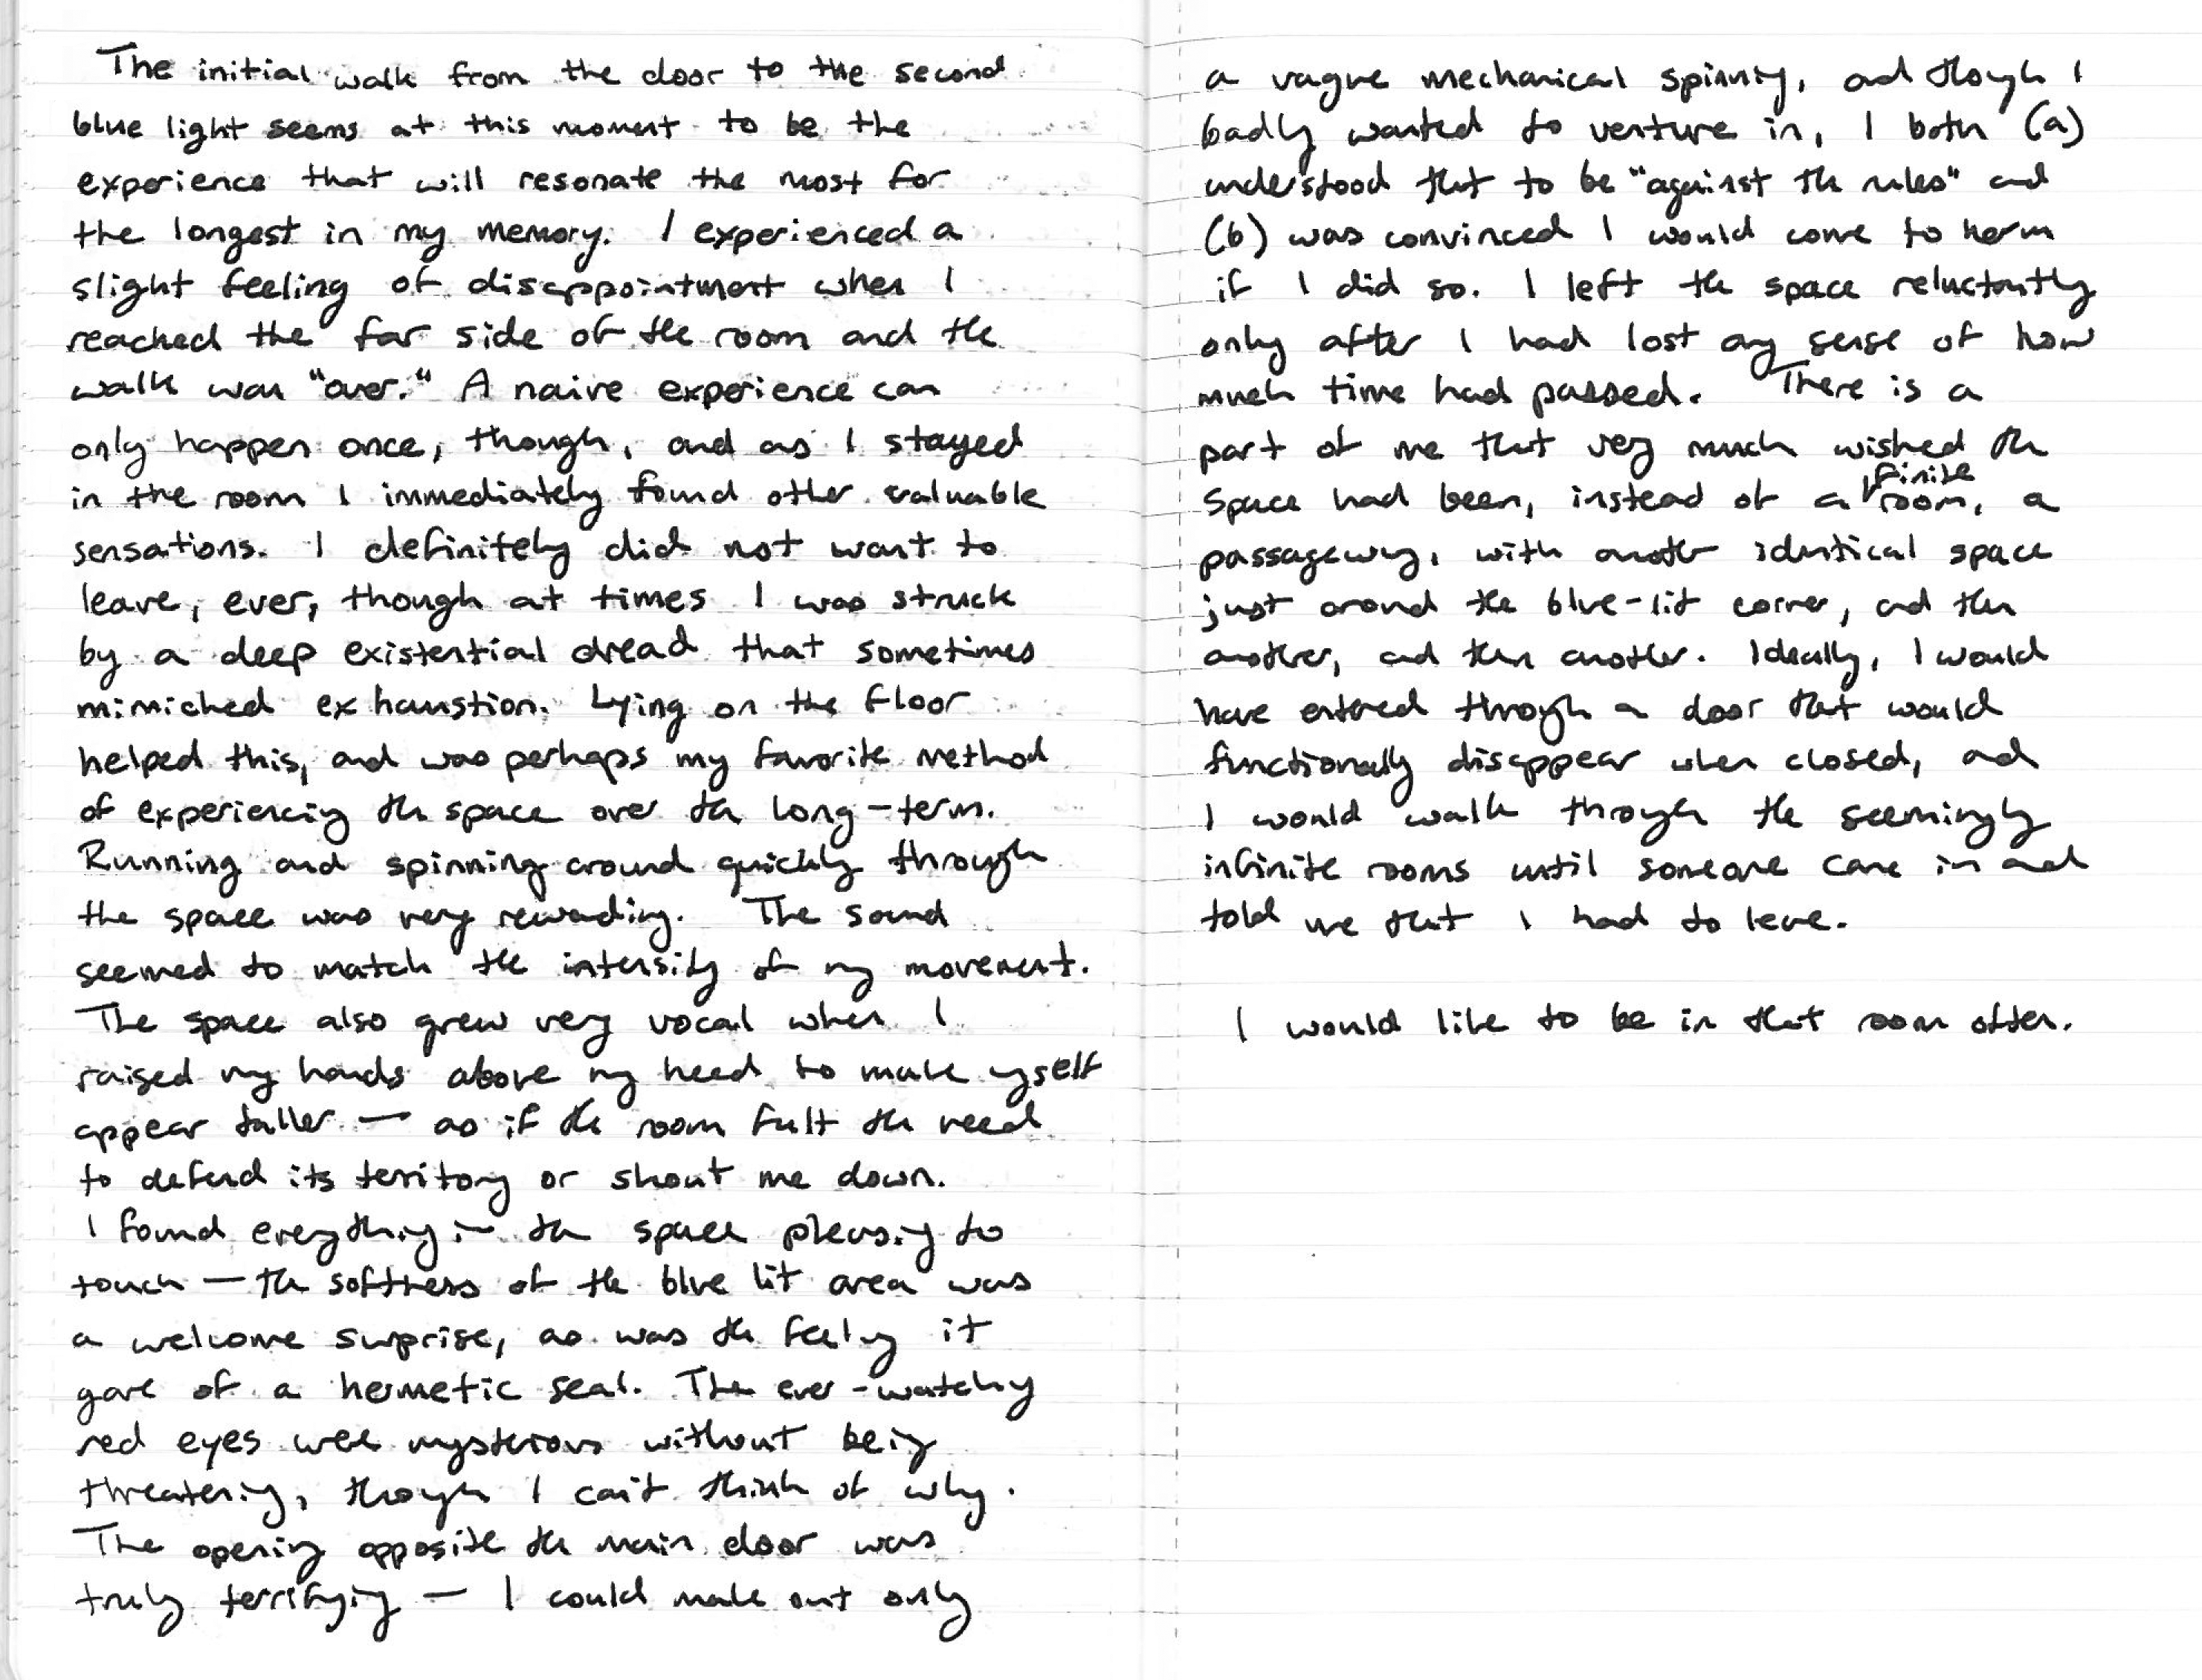 The initial walk from the door to the second
blue light seems at this moment to be the
experience that will resonate the most for
the longest in my memory. I experienced a
slight feeling of disappointment when I
reached the far side of the room and the
walk was "over." A naive experience can
only happen once, though, and as I stayed
in the room I immediately found other valuable
sensations. I definitely did not want to
leave, ever, though at times I was struck
by a deep existential dread that sometimes
mimiched exhaustion. Lying on the floor
helped this, and was perhaps my favorite method
of experiencing the space over the long-term.
Running and spinning around quickly through
the space was very rewarding. The sound
seemed to match the intensity of my movement.
The space also grew very vocal when I
raised my hands above my head to make myself
appear taller — as if the room felt the need
to defend its territory or shout me down.
I found everything in the space pleasing to
touch — the softness of the blue lit area was
a welcome surprise, as was the feeling it
gave of a hermetic seal. The ever-watching
red eyes were mysterious without being
threatening, though I can't think of why.
The opening opposite the main door was
truly terrifying — I could make out only
a vague mechanical spinning, and though I
badly wanted to venture in, I both (a)
understood that to be "against the rules" and
(b) was convinced I would come to harm
if I did so. I left the space reluctantly
only after I had lost any sense of how
much time had passed. There is a
part of me that very much wished the
space had been, instead of a finite room, a
passageway, with another identical space
just around the blue-lit corner, and then
another, and then another. Ideally, I would
have entered through a door that would
functionally disappear when closed, and
I would walk through the seemingly
infinite rooms until someone came in and
told me that I had to leave.
I would like to be in that room often.